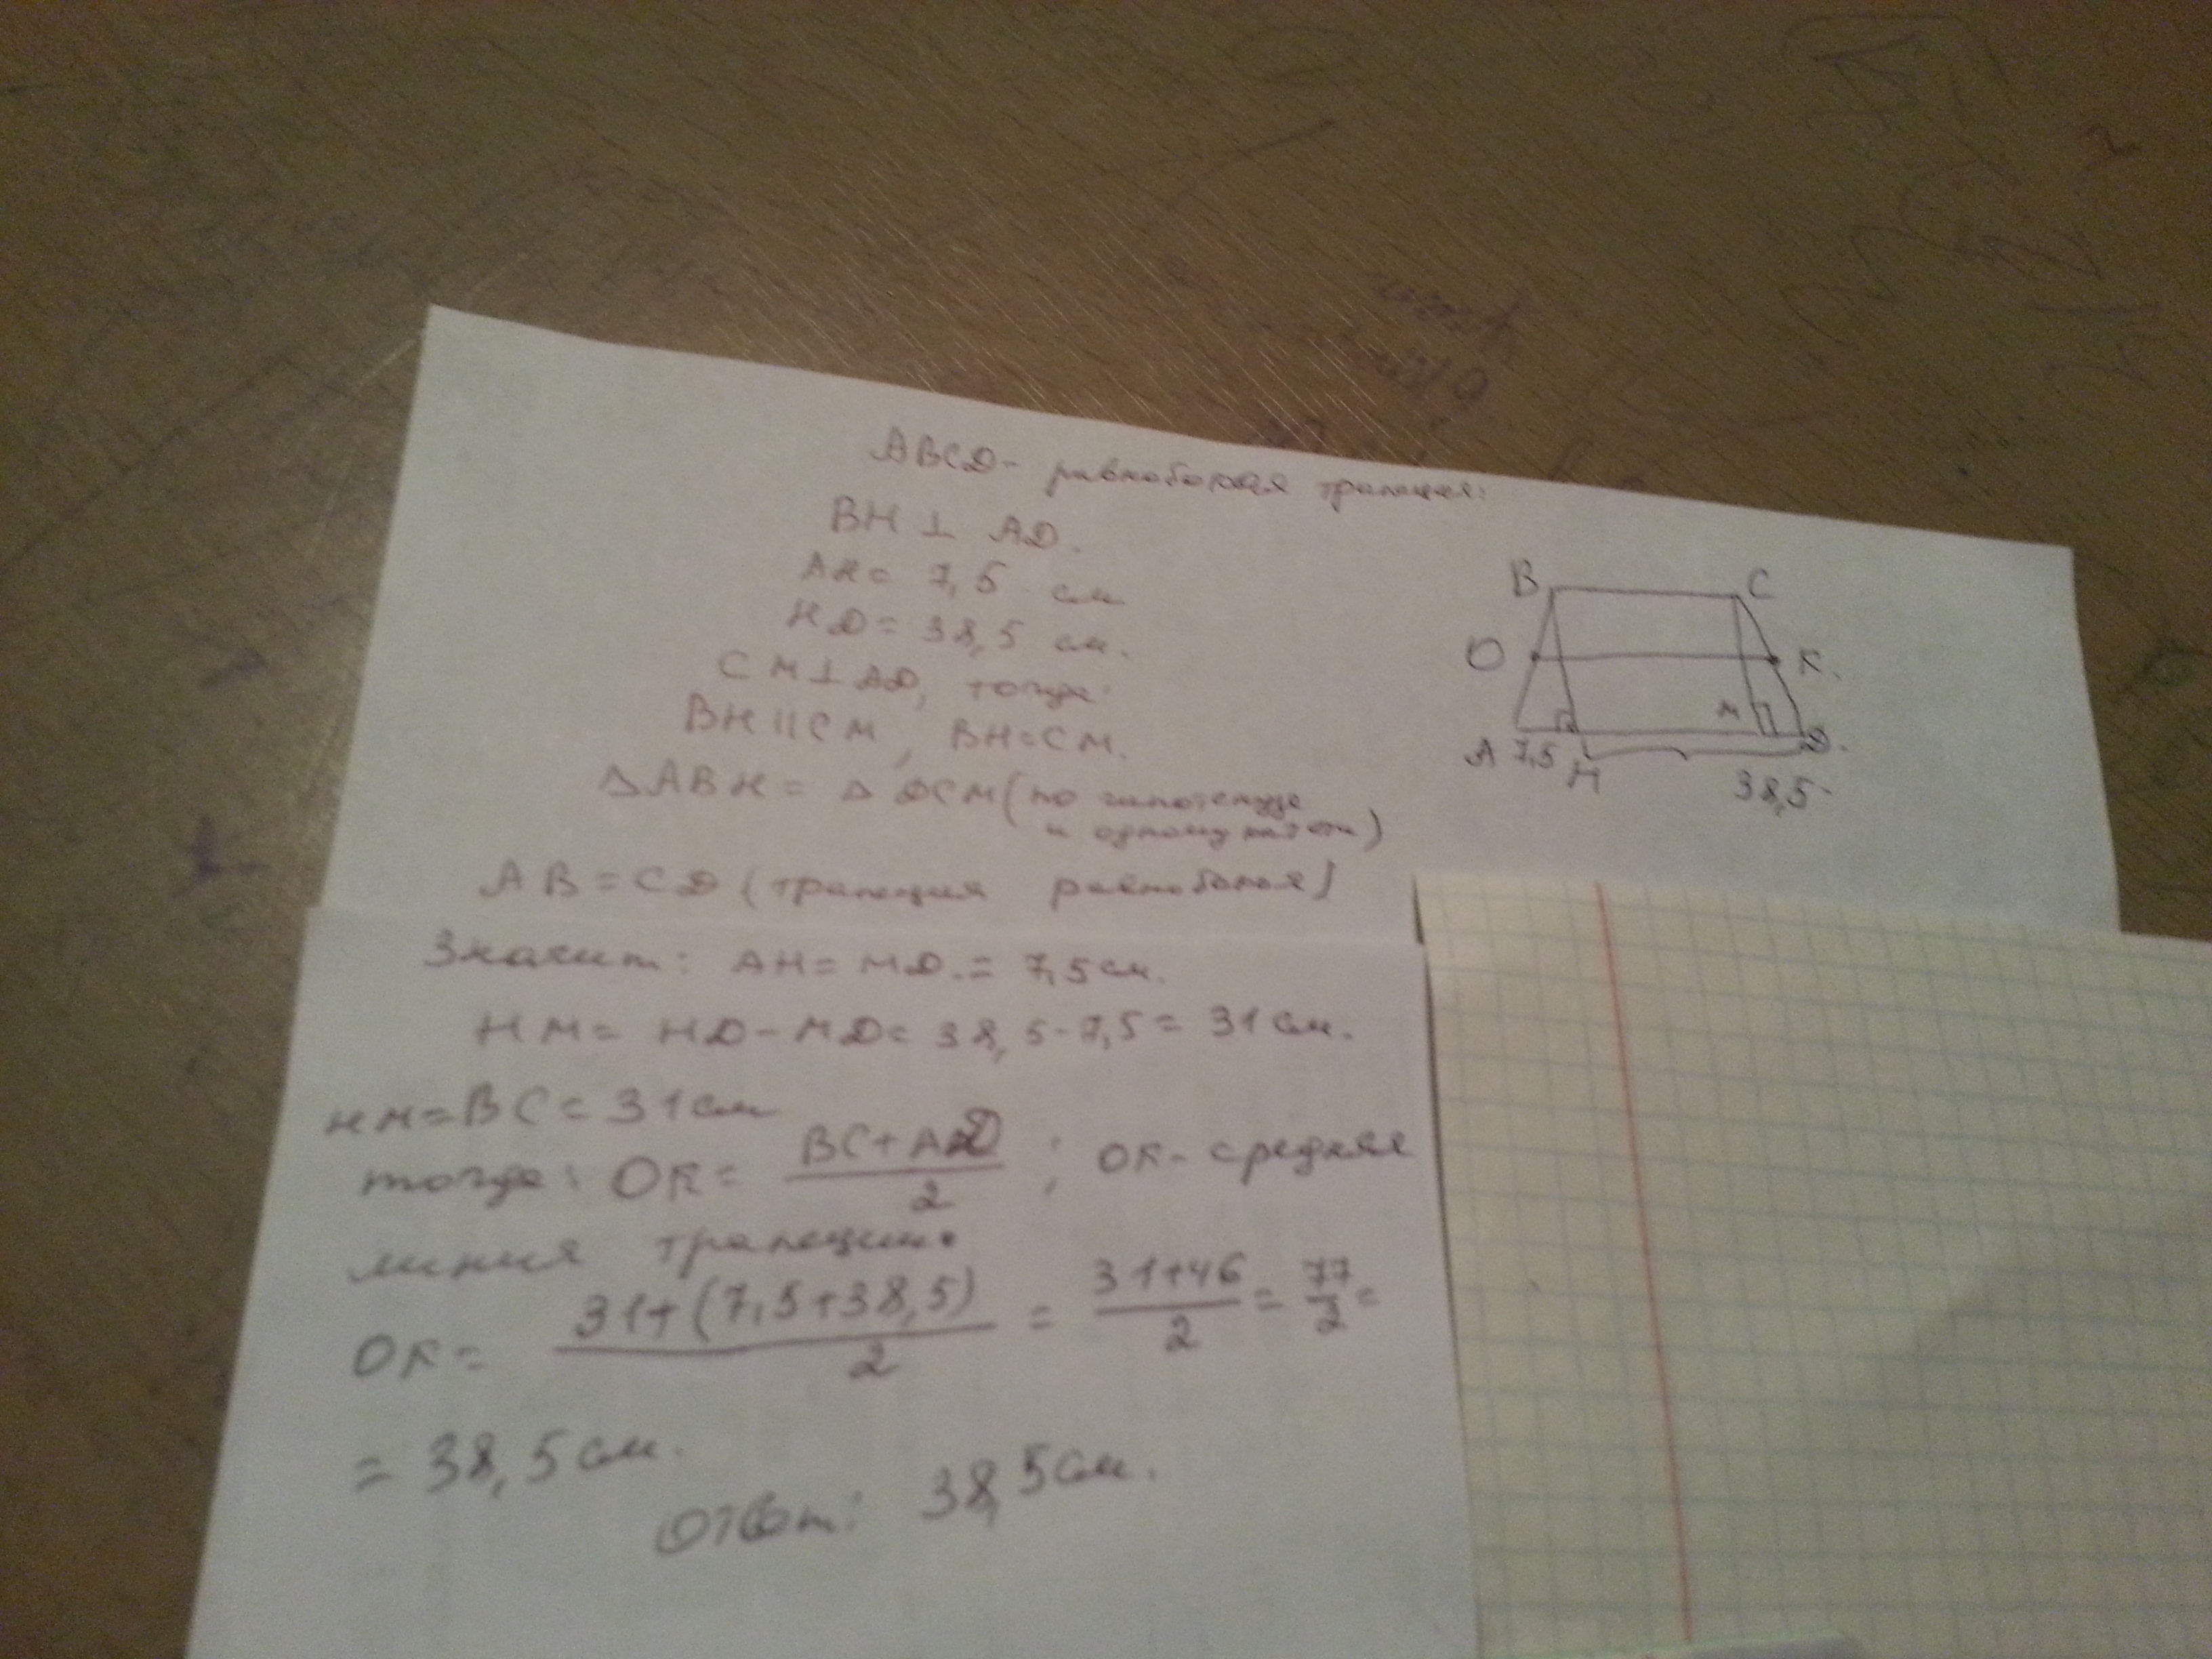 ABCD - равнобокая трапеция:
BH ⊥ AD.
AH = 7,5 см
HD = 38,5 см.
CM ⊥ AD, тогда:
BH || CM, BH = CM.
△ABH = △DCM (по гипотенузе
и одному катету)
AB = CD (трапеция равнобокая)
Значит: AH = MD. = 7,5 см.
HM = HD - MD = 38,5 - 7,5 = 31 см.
HM = BC = 31 см
тогда: OK = \frac{BC + AD}{2} ; OK - средняя
линия трапеции.
OK = \frac{31 + (7,5 + 38,5)}{2} = \frac{31 + 46}{2} = \frac{77}{2} =
= 38,5 см.
Ответ: 38,5 см.
B C
O K.
M
A 7,5 H D.
38,5